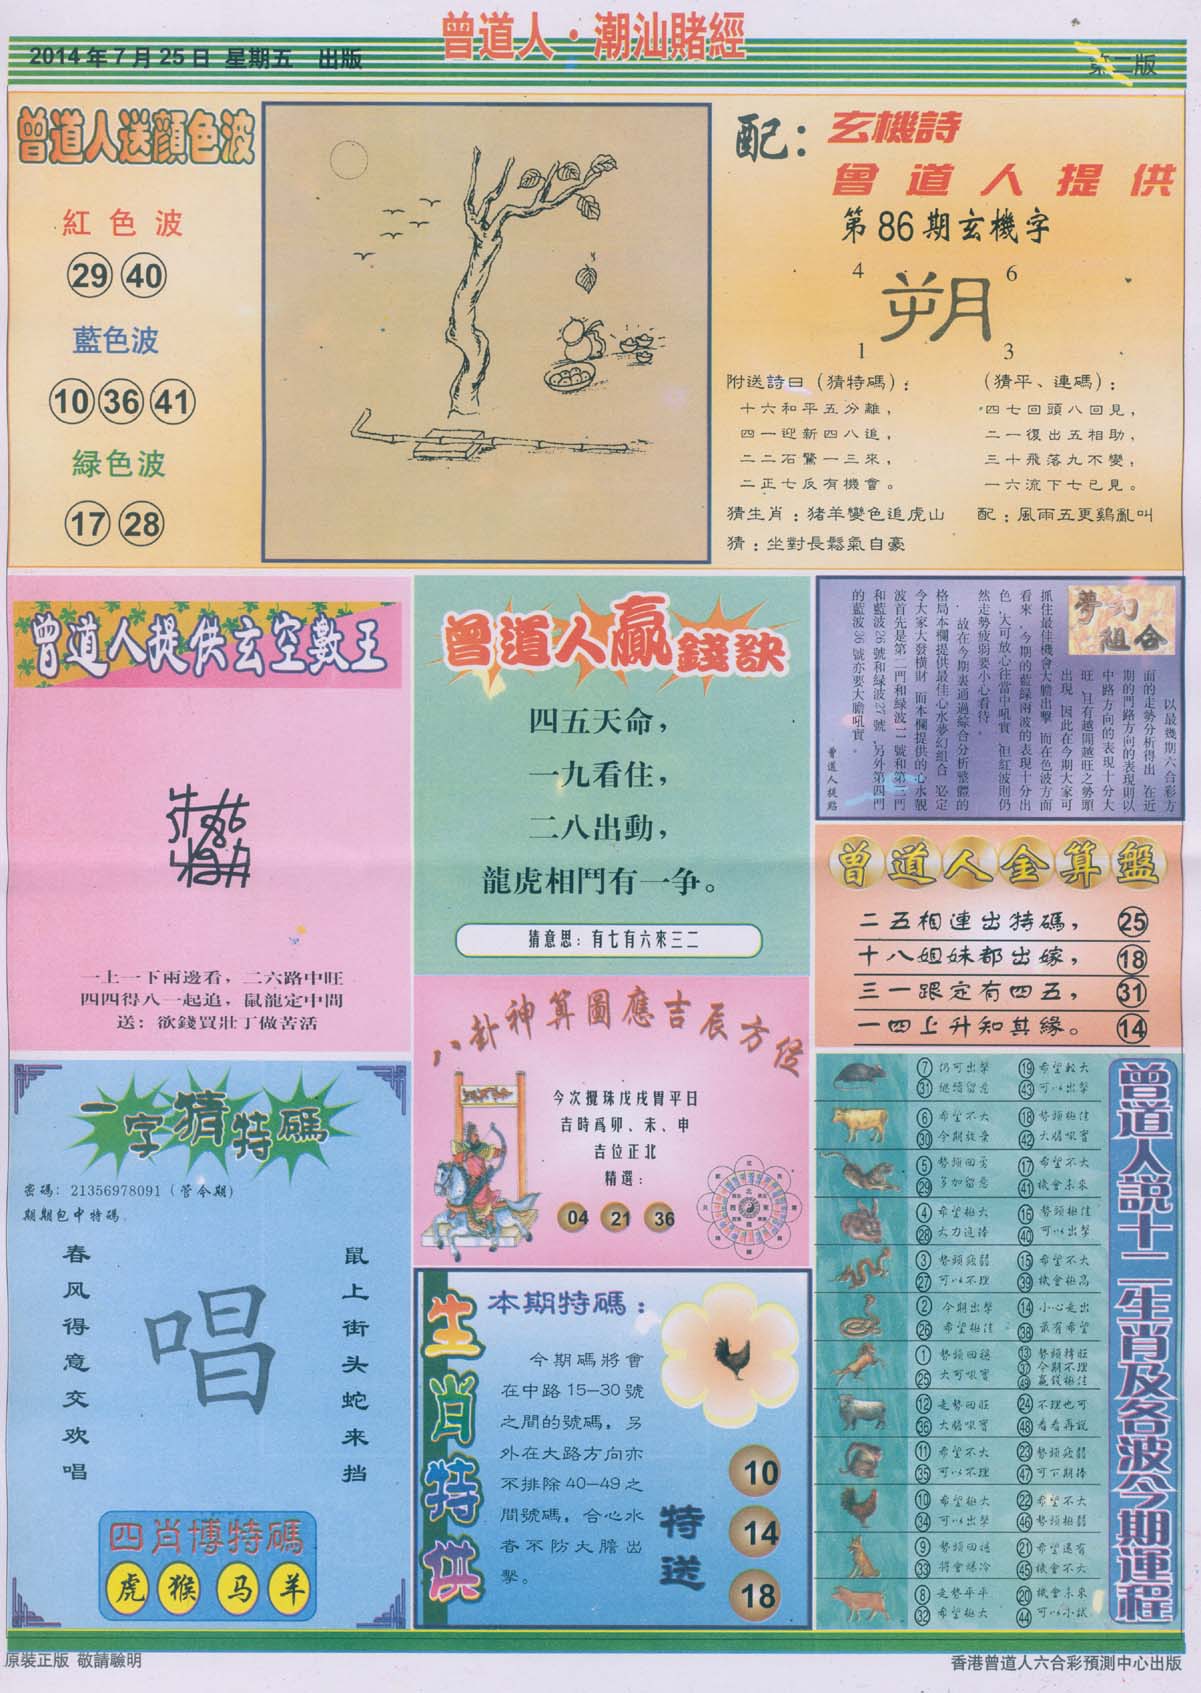 曾道人·潮汕賭經
2014年7月25日 星期五 出版
第二版
曾道人送顔色波
紅色波
29 40
藍色波
10 36 41
緑色波
17 28
配：玄機詩
曾道人提供
第86期玄機字
4 6
朔
1 3
附送詩曰（猜特碼）：
十六和平五分離，
四一迎新四八追，
二二石驚一三來，
二正七反有機會。
（猜平、連碼）：
四七回頭八回見，
二一復出五相助，
三十飛落九不變，
一六流下七已見。
猜生肖：猪羊變色追虎山
配：風雨五更鷄亂叫
猜：坐對長鬆氣自豪
曾道人提供玄空數王
一上一下兩邊看，二六路中旺
四四得八一起追，鼠龍定中間
送：欲錢買壯丁做苦活
曾道人贏錢訣
四五天命，
一九看住，
二八出動，
龍虎相鬥有一争。
猜意思：有七有六來三二
夢幻組合
以最幾期六合彩方
面的走勢分析得出，在近
期的門路方向的表現則以
中路方向的表現十分大
旺，且有越開越旺之勢頭
出現，因此在今期大家可
抓住最佳機會大膽出擊，而在色波方面
看來，今期的藍緑兩波的表現十分出
色，大可放心往當中吼實，但紅波則仍
然走勢疲弱要小心看待。
故在今期裏通過綜合分析整體的
格局本欄提供最佳心水夢幻組合，必定
令大家大發横財，而本欄提供的心水靚
波首先是第二門和緑波11號和第三門
和藍波26號和緑波27號，另外第四門
的藍波36號亦要大膽吼實。
曾道人提點
曾道人金算盤
二五相連出特碼， 25
十八姐妹都出嫁， 18
三一跟定有四五， 31
一四上升知其緣。 14
一字猜特碼
密碼：21356978091（管令期）
期期包中特碼
春风得意交欢唱
唱
鼠上街头蛇来挡
四肖博特碼
虎 猴 马 羊
八卦神算圖應吉辰方位
今次攪珠戊戌胃平日
吉時爲卯、未、申
吉位正北
精選：
04 21 36
生肖特供
本期特碼：
今期碼將會
在中路15—30號
之間的號碼，另
外在大路方向亦
不排除40—49之
間號碼，合心水
者不防大膽出
擊。
特送
10
14
18
曾道人説十二生肖及各波今期運程
7 仍可出擊 19 希望較大
31 繼續留意 43 可以出擊
6 希望不大 18 勢頭極佳
30 今期放棄 42 大膽吼實
5 勢頭回勇 17 希望不大
29 多加留意 41 機會未來
4 希望極大 16 勢頭極佳
28 大力追捧 40 可以出擊
3 勢頭疲弱 15 希望不大
27 可以不理 39 機會極高
2 今期出擊 14 小心走出
26 希望極佳 38 最有希望
1 勢頭回穩 13 勢頭持旺
25 大可吼實 37 今期不理
49 贏錢極佳
12 走勢回旺 24 不理也可
36 大膽吼實 48 看看再説
11 希望不大 23 勢頭疲弱
35 可以不理 47 可下期捧
10 希望極大 22 希望不大
34 可以出擊 46 勢頭極弱
9 勢頭回穩 21 希望還有
33 將會爆冷 45 機會不大
8 走勢平平 20 機會未來
32 希望極大 44 可以小試
原裝正版 敬請驗明
香港曾道人六合彩預測中心出版